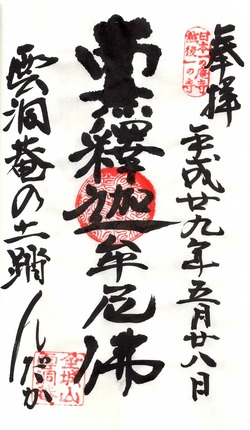 奉拝 平成廿九年五月廿八日
日本一の庵寺
越後一の寺
南無釋迦牟尼佛
雲洞菴の土踏んだか
金城山
雲洞菴